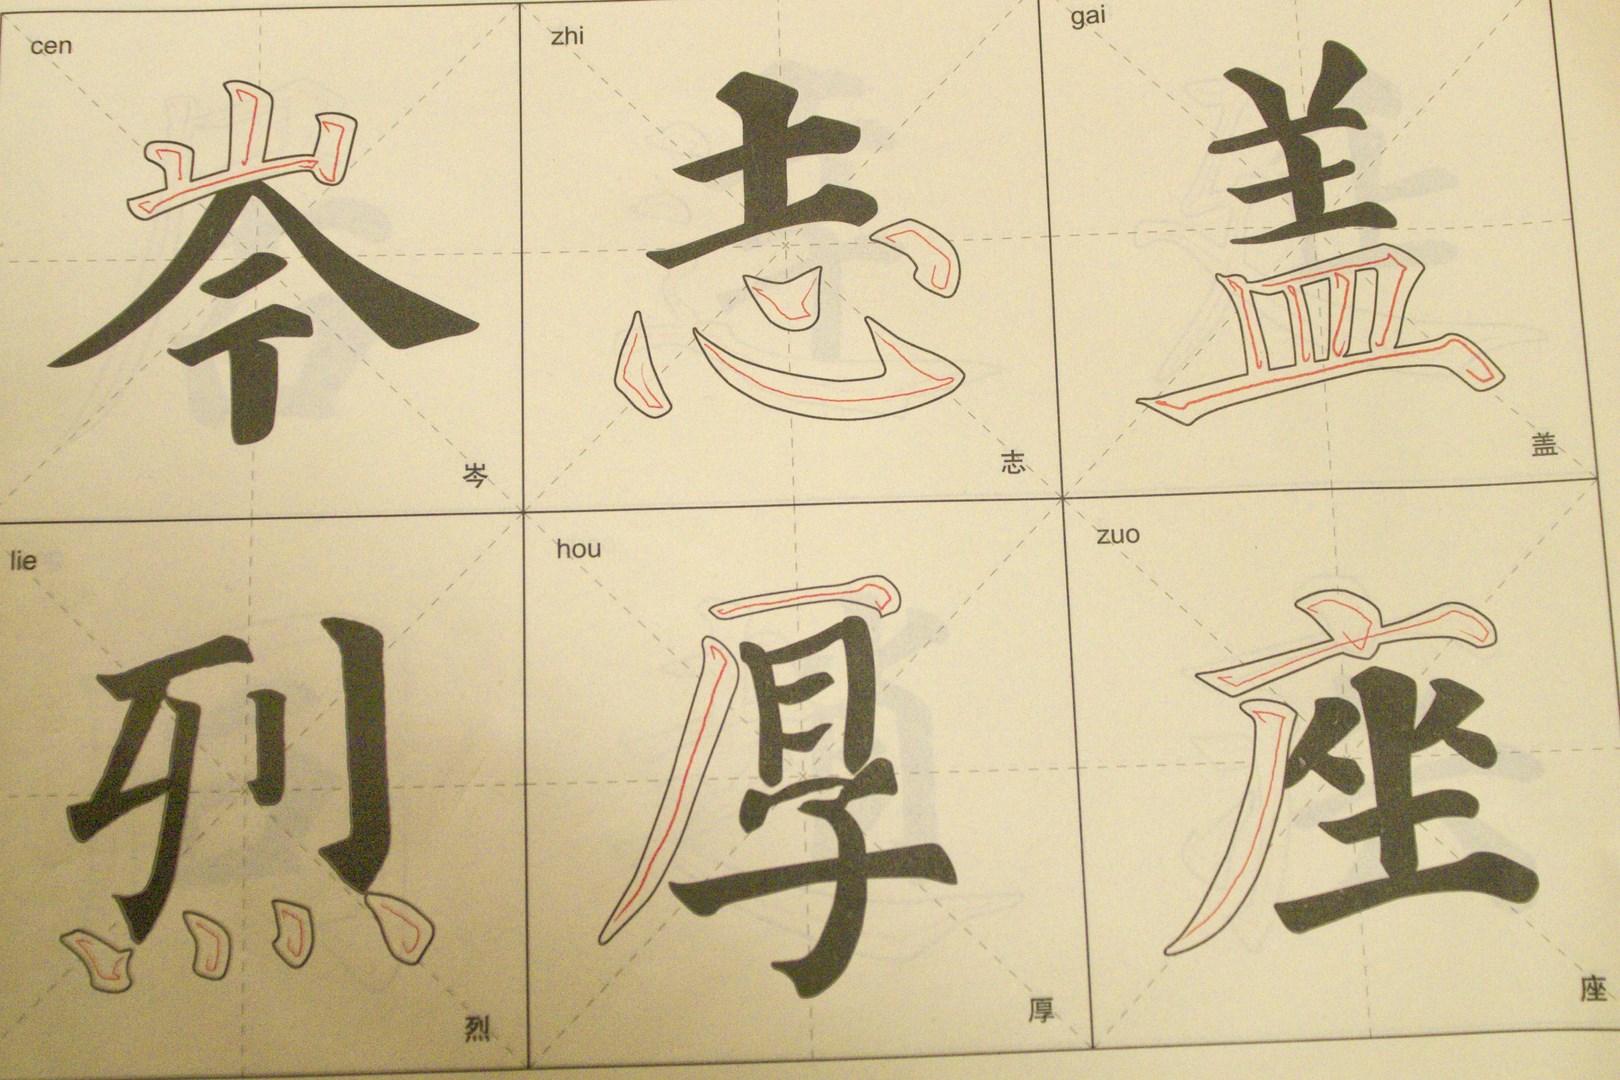 cen
岑
岑
zhi
志
志
gai
盖
盖
lie
烈
烈
hou
厚
厚
zuo
座
座